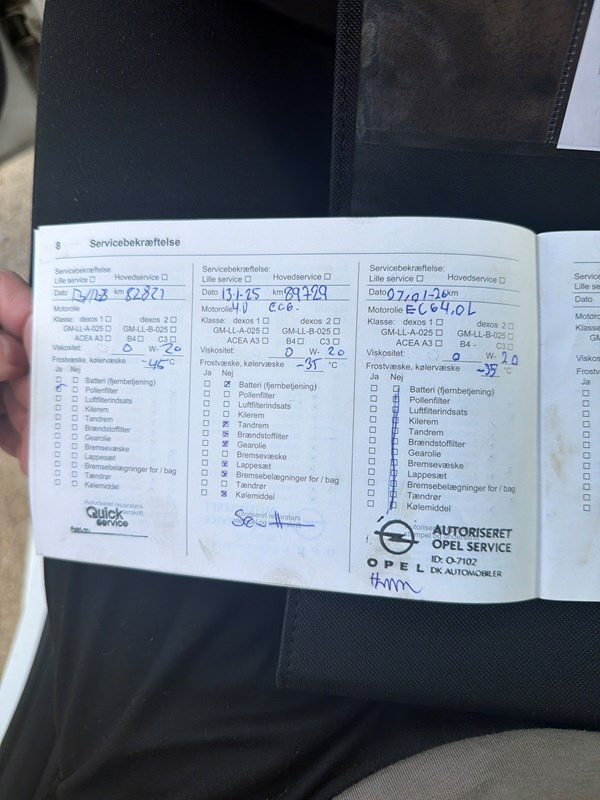 8 Servicebekræftelse
Servicebekræftelse:
Lille service Hovedservice
Dato km 82821
Motorolie
Klasse: dexos 1 dexos 2
GM-LL-A-025 GM-LL-B-025
ACEA A3 B4 C3
Viskositet: 0 W- 20
Frostvæske, kølervæske -45 °C
Ja Nej
Batteri (fjernbetjening)
Pollenfilter
Luftfilterindsats
Kilerem
Tandrem
Brændstoffilter
Gearolie
Bremsevæske
Lappesæt
Bremsebelægninger for / bag
Tændrør
Kølemiddel
Quick
service
Servicebekræftelse:
Lille service Hovedservice
Dato 13-1-25 km 89729
Motorolie 4.0 EC6.
Klasse: dexos 1 dexos 2
GM-LL-A-025 GM-LL-B-025
ACEA A3 B4 C3
Viskositet: 0 W- 20
Frostvæske, kølervæske -35 °C
Ja Nej
Batteri (fjernbetjening)
Pollenfilter
Luftfilterindsats
Kilerem
Tandrem
Brændstoffilter
Gearolie
Bremsevæske
Lappesæt
Bremsebelægninger for / bag
Tændrør
Kølemiddel
Servicebekræftelse:
Lille service Hovedservice
Dato 07-01-26 km
Motorolie EC6 4.0L
Klasse: dexos 1 dexos 2
GM-LL-A-025 GM-LL-B-025
ACEA A3 B4 C3
Viskositet: 0 W- 20
Frostvæske, kølervæske -35 °C
Ja Nej
Batteri (fjernbetjening)
Pollenfilter
Luftfilterindsats
Kilerem
Tandrem
Brændstoffilter
Gearolie
Bremsevæske
Lappesæt
Bremsebelægninger for / bag
Tændrør
Kølemiddel
AUTORISERET
OPEL SERVICE
ID: O-7102
OPEL DK AUTOMOBILER